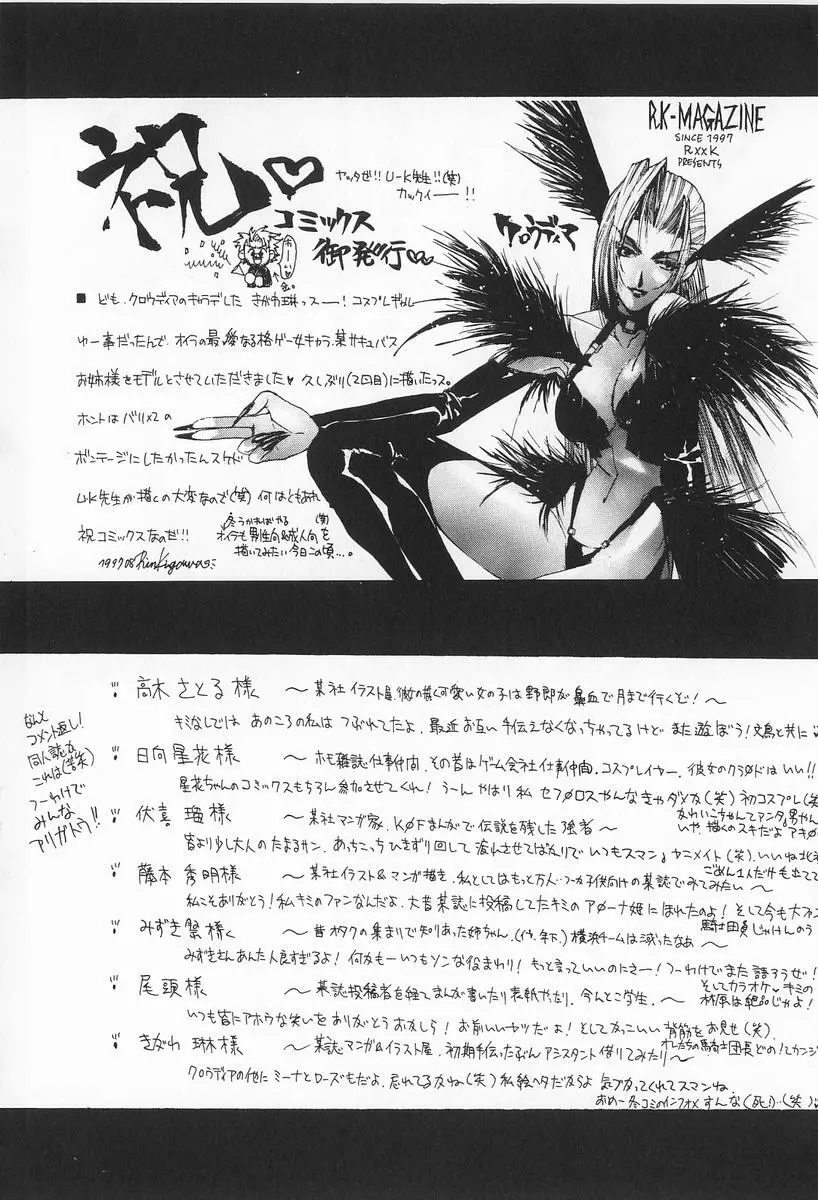 R.K-MAGAZINE
SINCE 1997
RxxK
PRESENTS
祝♡
ヤッタゼ!! U-K先生!!(笑)
カックイー!!
コミックス
御発行♡
クロウディア
■ども、クロウディアのキャラデした きがわ琳っスー! コスプレギャル
ゆー事だったんで、オイラの最愛なる格ゲー女キャラ、某サキュバス
お姉様をモデルとさせていただきました♥ 久しぶり(2回目)に描いたっス。
ホントはバリバリの
ボンテージにしたかったんスケド
U.K先生が描くの大変なので(笑) 何はともあれ
祝コミックスなのだ!!
オイラも男性向&成人向を (笑)
描いてみたい今日この頃…。
1997.08
なんと
コメント返し!
同人誌な
これは(苦笑)
つーわけで
みんな
アリガトウ!!
高木 さとる 様 〜某社イラスト屋、彼の描く可愛い女の子は野郎が鼻血で月まで行くぞ!〜
キミなしでは あのころの私は つぶれてたよ、最近お互い手伝えなくなっちゃってるけど また遊ぼう!
日向 星花 様 〜ホモ雑誌仕事仲間、その昔はゲーム会社仕事仲間、コスプレイヤー、彼女のクラ∅ドはいい!!
星花ちゃんのコミックスもちろん参加させてくれ! うーん やはり私 セフ∅ロスやんなきゃダメカ(笑) 初コスプレ(笑
かわいこちゃんてアンタ
いや、描くのスキだよ
伏喜 瑠 様 〜某社マンガ家、K∅Fまんがで伝説を残した強者〜
皆より少し大人のたよるサン、あっちこっちひきずり回して 疲れさせてばかりで いつもスマン。ヤニメイト(笑)、いいね
ごめん1人だけも立てて
藤本 秀明 様 〜某社イラスト&マンガ描き、私としてはもっと万人…つーか子供向けの某誌でみてみたい〜
私こそありがとう! 私キミのファンなんだよ、大昔某誌に投稿してたキミのア∅ーナ姫にほれたのよ! そして今も大ファン
みずき 祭 様 〜昔オタクの集まりで知りあった姉ちゃん、(イヤ、年下。) 横浜チームは滅ったなあ〜
みずきさんあんた人良すぎるよ! 何かもーいつもソンなまわり! もっと言っていいのにさー! つーわけでまた語ろうぜ!
そしてカラオケ♥キミの
は絶品じゃよ!
尾頭 様 〜某誌投稿者を経てまんが書いたり表紙やったり、今んとこ学生、〜
いつも皆にアホウな笑いをありがとうおかしら! お前いいヤツだよ! そしてかっこいい背筋をお見せ(笑)
きがわ 琳 様 〜某誌マンガ&イラスト屋、初期手伝ったぶんアシスタント借りてみたり〜
クロウディアの他にミーナとローズもだよ、忘れてるかね(笑) 私絵ヘタだからよ 気づかってくれてスマンね。
おめー冬コミのインフォメすんな(死)…(笑)